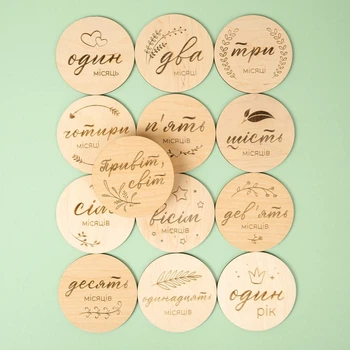 один
місяць
два
місяці
три
місяці
чотири
місяці
п'ять
місяців
шість
місяців
Привіт,
світ
сім
місяців
вісім
місяців
дев'ять
місяців
десять
місяців
одинадцять
місяців
один
рік